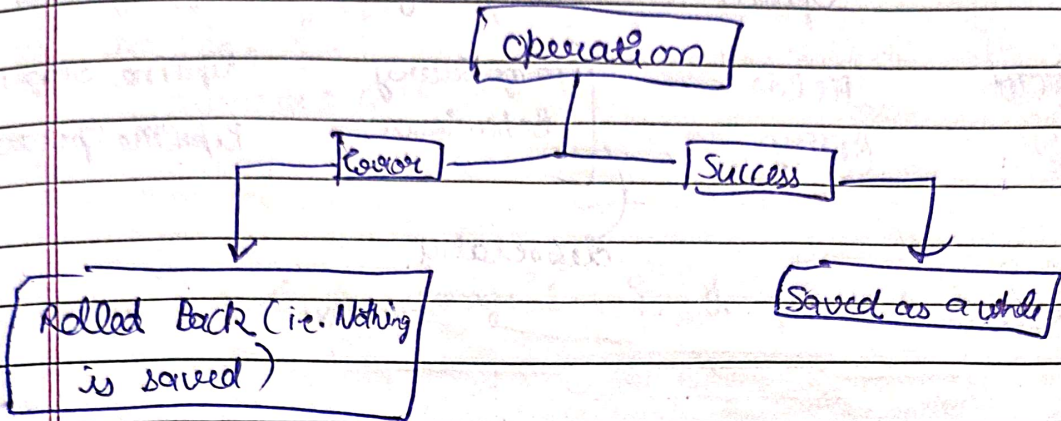 Operation
Error
Success
Rolled Back (i.e. Nothing
is saved)
Saved as a whole